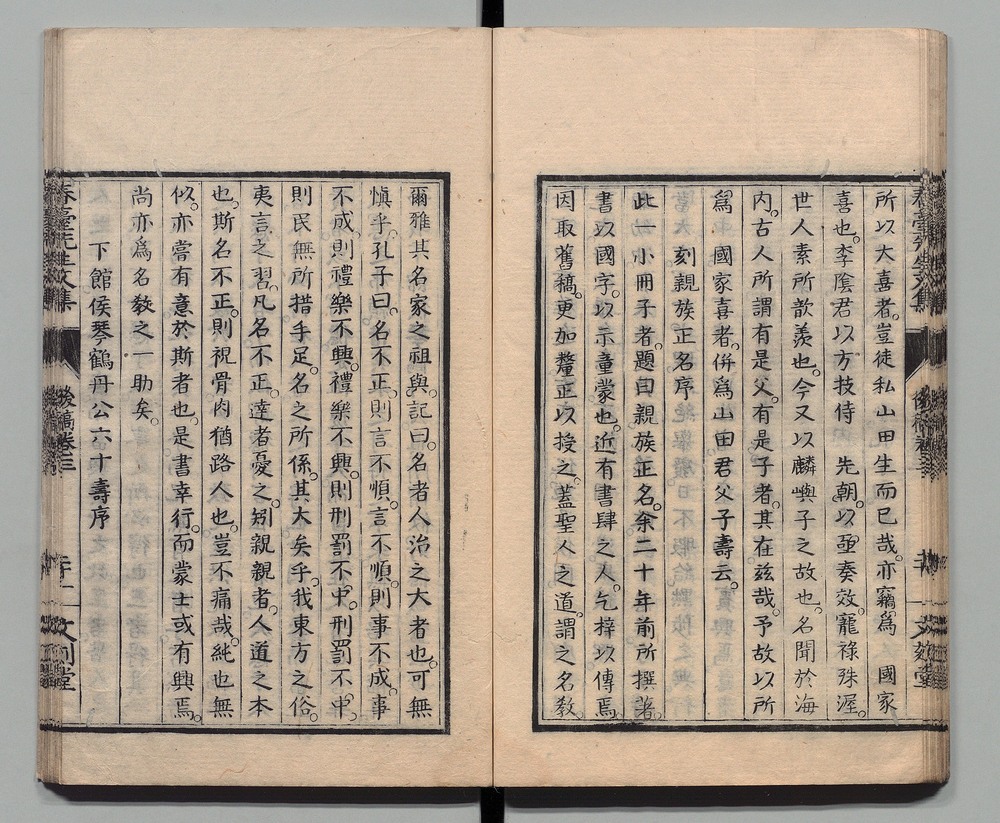 所以大喜者。豈徒私山田生而已哉。亦竊爲 國家
喜也。李陰君以方技侍 先朝。以亟奏效。寵祿殊渥。
世人素所歆羨也。今又以麟嶼子之故也。名聞於海
内。古人所謂有是父。有是子者。其在玆哉。予故以所
爲 國家喜者。併爲山田君父子壽云。
刻親族正名序
此一小冊子者。題曰親族正名。余二十年前所撰著。
書以國字。以示童蒙也。近有書肆之人。乞梓以傳焉。
因取舊稿。更加釐正以授之。蓋聖人之道。謂之名敎。
爾雅其名家之祖與。記曰。名者人治之大者也。可無
愼乎。孔子曰。名不正。則言不順。言不順。則事不成。事
不成。則禮樂不興。禮樂不興。則刑罰不中。刑罰不中。
則民無所措手足。名之所係。其大矣乎。我東方之俗。
夷言之習。凡名不正。達者憂之。矧親親者。人道之本
也。斯名不正。則視骨肉猶路人也。豈不痛哉。純也無
似。亦嘗有意於斯者也。是書幸行。而蒙士或有興焉。
尚亦爲名敎之一助矣。
下館侯琴鶴丹公六十壽序
春臺先生文集 後稿卷三